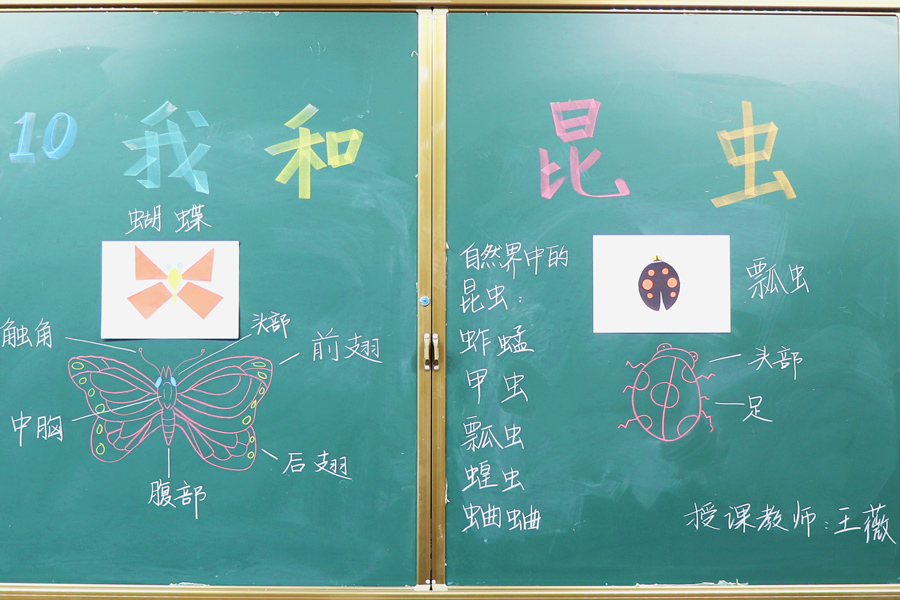 10 我和昆虫
蝴蝶
触角
头部
前翅
中胸
后翅
腹部
自然界中的
昆虫:
蚱蜢
甲虫
瓢虫
蝗虫
蛐蛐
瓢虫
头部
足
授课教师:王薇